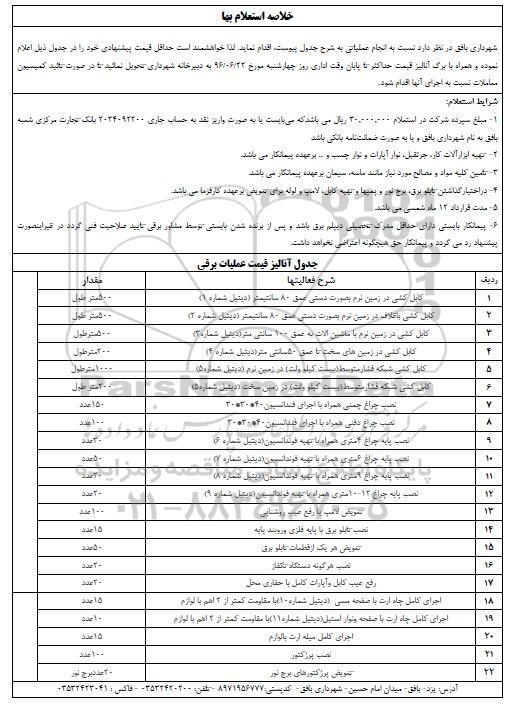 خلاصه استعلام بها
شهرداری بافق در نظر دارد نسبت به انجام عملیاتی به شرح جدول پیوست، اقدام نماید. لذا خواهشمند است حداقل قیمت پیشنهادی خود را در جدول ذیل اعلام
نموده و همراه با برگ آنالیز قیمت حداکثر تا پایان وقت اداری روز چهارشنبه مورخ ۹۶/۰۶/۲۲ به دبیرخانه شهرداری تحویل نمائید تا در صورت تائید کمیسیون
معاملات نسبت به اجرای آنها اقدام شود.
شرایط استعلام:
۱- مبلغ سپرده شرکت در استعلام ۳۰،۰۰۰،۰۰۰ ریال می باشدکه می‌بایست یا به صورت واریز نقد به حساب جاری ۲۰۲۴۰۹۲۲۰۰ بانک تجارت مرکزی شعبه
بافق به نام شهرداری بافق و یا به صورت ضمانت‌نامه بانکی باشد
۲- تهیه ابزارآلات کار، جرثقیل، نوار آپارات و نوار چسب و ... برعهده پیمانکار می باشد.
۳- تامین کلیه مواد و مصالح مورد نیاز مانند ماسه، سیمان برعهده پیمانکار می باشد.
۴- دراختیارگذاشتن تابلو برق، برج نور و پمپها و تهیه کابل، لامپ و لوله برای تعویض برعهده کارفرما می باشد.
۵- مدت قرارداد ۱۲ ماه شمسی می باشد.
۶- پیمانکار بایستی دارای حداقل مدرک تحصیلی دیپلم برق باشد و پس از برنده شدن بایستی توسط مشاور برقی تایید صلاحیت فنی گردد در غیراینصورت
پیشنهاد رد می گردد و پیمانکار حق هیچگونه اعتراضی نخواهد داشت.
جدول آنالیز قیمت عملیات برقی
ردیف شرح فعالیتها مقدار
۱ کابل کشی در زمین نرم بصورت دستی عمق ۸۰ سانتیمتر (دیتیل شماره ۱) ۵۰۰متر طول
۲ کابل کشی باغلاف در زمین نرم بصورت دستی عمق ۸۰ سانتیمتر (دیتیل شماره ۲) ۵۰۰مترطول
۳ کابل کشی در زمین نرم با ماشین الات به عمق ۱۰۰ سانتی متر(دیتیل شماره۳) ۵۰۰مترطول
۴ کابل کشی در زمین های سخت تا عمق ۵۰سانتی متر(دیتیل شماره ۴) ۲۰۰مترطول
۵ کابل کشی شبکه فشارمتوسط(بیست کیلو ولت) در زمین نرم (دیتیل شماره۵) ۱۰۰۰مترطول
۶ کابل کشی شبکه فشارمتوسط(بیست کیلو ولت) در زمین سخت (دیتیل شماره۵) ۲۰۰مترطول
۷ نصب چراغ چمنی همراه با اجرای فندانسیون۴۰*۳۰*۳۰ ۱۵۰عدد
۸ نصب چراغ دفنی همراه با اجرای فندانسیون۴۰*۳۰*۳۰ ۱۰۰عدد
۹ نصب پایه چراغ ۴متری همراه با تهیه فونداتسیون(دیتیل شماره ۶) ۳۰عدد
۱۰ نصب پایه چراغ ۶متری همراه با تهیه فونداتسیون(دیتیل شماره ۷) ۵۰عدد
۱۱ نصب پایه چراغ ۹متری همراه با تهیه فونداتسیون(دیتیل شماره ۸) ۲۰عدد
۱۲ نصب پایه چراغ ۱۲-۱۰متری همراه با تهیه فونداتسیون(دیتیل شماره ۹) ۲۰عدد
۱۳ تعویض لامپ یا رفع عیب روشنایی ۱۰۰عدد
۱۴ نصب تابلو برق با پایه فلزی وروبند پایه ۱۵عدد
۱۵ تعویض هر یک ازقطعات تابلو برق ۵۰عدد
۱۶ نصب هرگونه دستگاه تکفاز ۲۰عدد
۱۷ رفع عیب کابل وآپارات کامل با حفاری محل ۲۰عدد
۱۸ اجرای کامل چاه ارت با صفحه مسی (دیتیل شماره۱۰)با مقاومت کمتر از ۲ اهم با لوازم ۱۵عدد
۱۹ اجرای کامل چاه ارت با صفحه ونوار استیل(دیتیل شماره۱۱)با مقاومت کمتر از ۲ اهم با لوازم ۱۰عدد
۲۰ اجرای کامل میله ارت بالوازم ۱۵عدد
۲۱ نصب پرژکتور ۱۰۰عدد
۲۲ تعویض پرژکتورهای برج نور ۲۰عددبرج نور
آدرس: یزد- بافق- میدان امام حسین- شهرداری بافق- کدپستی: ۸۹۷۱۹۵۶۷۷۷ -تلفن: ۰۳۵۳۲۴۲۰۲۰۰ - فاکس : ۰۳۵۳۲۴۲۳۰۴۱
ParsNamadData
پایگاه اطلاع رسانی مناقصه و مزایده
۰۲۱-۸۸۳۴۹۶۷۰-۵